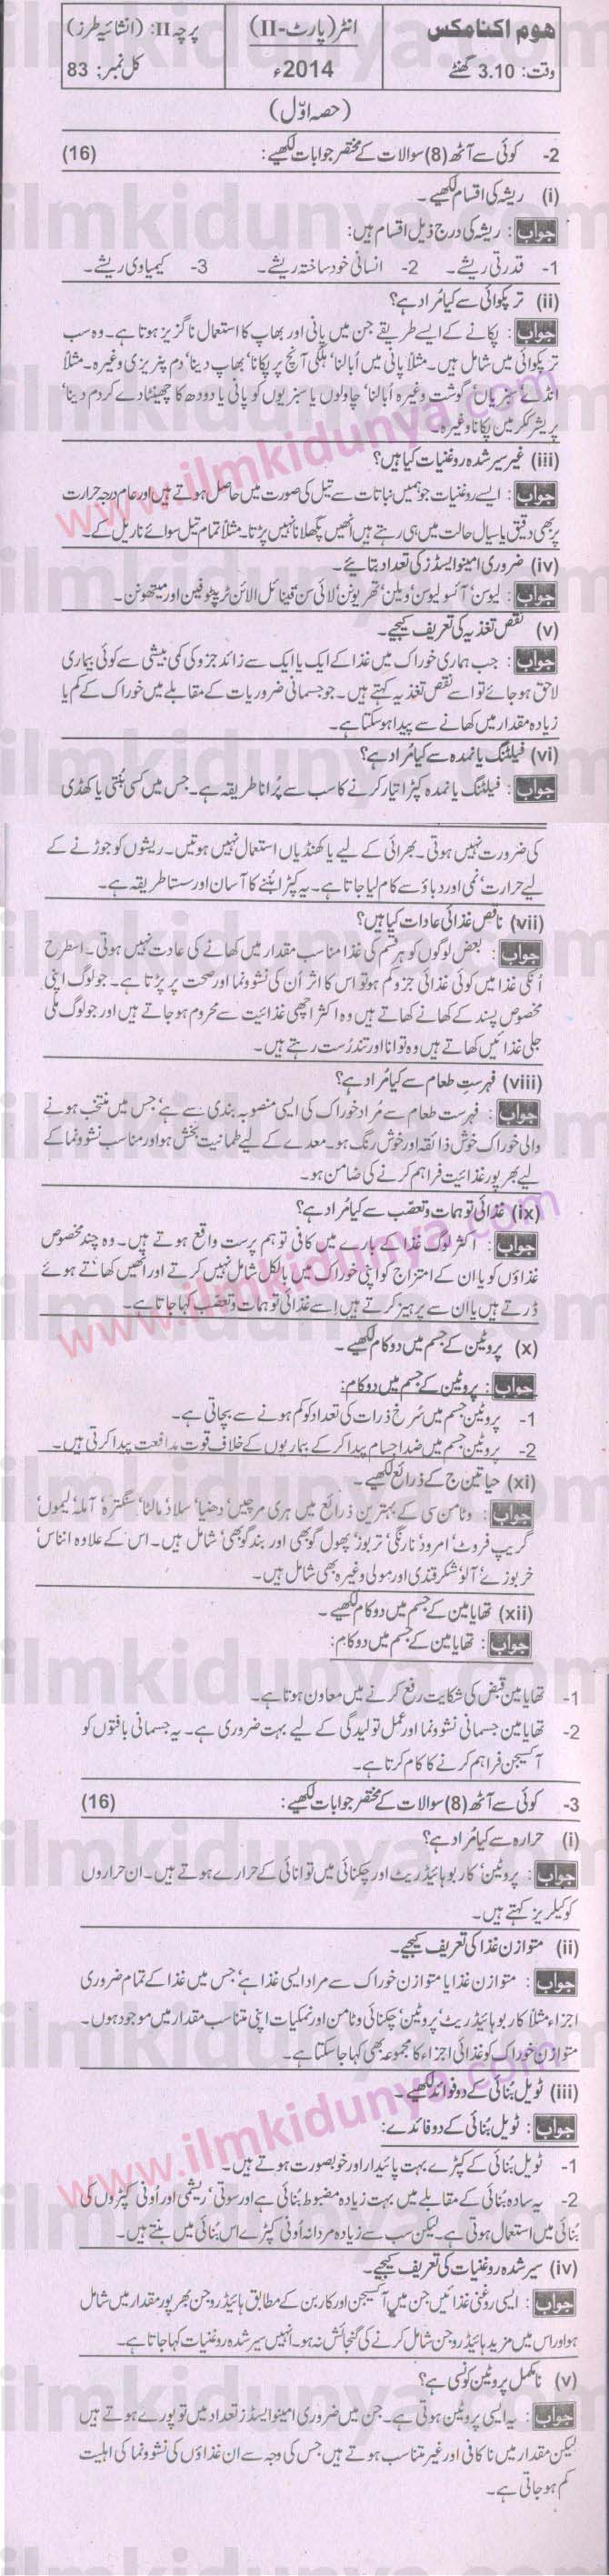 ہوم اکنامکس
انٹر (پارٹ-II)
پرچہ II: (انشائیہ طرز)
وقت: 3.10 گھنٹے
2014ء
کل نمبر: 83
(حصہ اوّل)
2- کوئی سے آٹھ (8) سوالات کے مختصر جوابات لکھیے: (16)
(i) ریشہ کی اقسام لکھیے۔
جواب : ریشہ کی درج ذیل اقسام ہیں:
1- قدرتی ریشے۔ 2- انسانی خود ساختہ ریشے۔ 3- کیمیاوی ریشے۔
(ii) تر پکوائی سے کیا مُراد ہے؟
جواب : پکانے کے ایسے طریقے جن میں پانی اور بھاپ کا استعمال ناگزیر ہوتا ہے۔ وہ سب
تر پکوائی میں شامل ہیں۔ مثلاً پانی میں اُبالنا، ہلکی آنچ پر پکانا، بھاپ دینا، دم پذیری وغیرہ۔ مثلاً
انڈے، سبزیاں، گوشت وغیرہ اُبالنا، چاولوں یا سبزیوں کو پانی یا دودھ کا چھینٹا دے کر دم دینا،
پریشر ککر میں پکانا وغیرہ۔
(iii) غیر سیر شدہ روغنیات کیا ہیں؟
جواب : ایسے روغنیات جو ہمیں نباتات سے تیل کی صورت میں حاصل ہوتے ہیں اور عام درجہ حرارت
پر بھی دقیق یا سیال حالت میں ہی رہتے ہیں انھیں پگھلانا نہیں پڑتا۔ مثلاً تمام تیل سوائے ناریل کے۔
(iv) ضروری امینو ایسڈز کی تعداد بتائیے۔
جواب : لیوسن، آئسولیوسن، ویلن، تھریونن، لائی سن، فینائل الانن، ٹرپٹوفین اور میتھونن۔
(v) نقص تغذیہ کی تعریف کیجیے۔
جواب : جب ہماری خوراک میں غذا کے ایک یا ایک سے زائد جزو کی کمی بیشی سے کوئی بیماری
لاحق ہو جائے تو اسے نقص تغذیہ کہتے ہیں۔ جو جسمانی ضروریات کے مقابلے میں خوراک کے کم یا
زیادہ مقدار میں کھانے سے پیدا ہو سکتا ہے۔
(vi) فیلٹنگ یا نمدہ سے کیا مُراد ہے؟
جواب : فیلٹنگ یا نمدہ کپڑا تیار کرنے کا سب سے پُرانا طریقہ ہے۔ جس میں کسی بُنتی یا کھڈی
کی ضرورت نہیں ہوتی۔ بھرائی کے لیے یا کھنڈیاں استعمال نہیں ہوتیں۔ ریشوں کو جوڑنے کے
لیے حرارت، نمی اور دباؤ سے کام لیا جاتا ہے۔ یہ کپڑا بُننے کا آسان اور سستا طریقہ ہے۔
(vii) ناقص غذائی عادات کیا ہیں؟
جواب : بعض لوگوں کو ہر قسم کی غذا مناسب مقدار میں کھانے کی عادت نہیں ہوتی۔ اسطرح
اُنکی غذا میں کوئی غذائی جزو کم ہو تو اس کا اثر اُن کی نشوونما اور صحت پر پڑتا ہے۔ جو لوگ اپنی
مخصوص پسند کے کھانے کھاتے ہیں وہ اکثر اچھی غذائیت سے محروم ہو جاتے ہیں اور جو لوگ ملی
جلی غذائیں کھاتے ہیں وہ توانا اور تندرُست رہتے ہیں۔
(viii) فہرستِ طعام سے کیا مُراد ہے؟
جواب : فہرست طعام سے مُراد خوراک کی ایسی منصوبہ بندی سے ہے، جس میں منتخب ہونے
والی خوراک خوش ذائقہ اور خوش رنگ ہو۔ معدے کے لیے طمانیت بخش ہو اور مناسب نشوونما کے
لیے بھرپور غذائیت فراہم کرنے کی ضامن ہو۔
(ix) غذائی توہمات و تعصّب سے کیا مُراد ہے؟
جواب : اکثر لوگ غذا کے بارے میں کافی توہم پرست واقع ہوتے ہیں۔ وہ چند مخصوص
غذاؤں کو یا ان کے امتزاج کو اپنی خوراک میں بالکل شامل نہیں کرتے اور انھیں کھاتے ہوئے
ڈرتے ہیں یا ان سے پرہیز کرتے ہیں اسے غذائی توہمات و تعصّب کہا جاتا ہے۔
(x) پروٹین کے جسم میں دو کام لکھیے۔
جواب : پروٹین کے جسم میں دو کام:
1- پروٹین جسم میں سُرخ ذرات کی تعداد کو کم ہونے سے بچاتی ہے۔
2- پروٹین جسم میں ضد اجسام پیدا کر کے بیماریوں کے خلاف قوت مدافعت پیدا کرتی ہیں۔
(xi) حیاتین ج کے ذرائع لکھیے۔
جواب : وٹامن سی کے بہترین ذرائع میں ہری مرچیں، دھنیا، سلاد، مالٹا، سنگترہ، آملہ، لیموں،
گریپ فروٹ، امرود، نارنگی، تربوز، پھول گوبھی اور بند گوبھی شامل ہیں۔ اس کے علاوہ انناس،
خربوزے، آلو، شکرقندی اور مولی وغیرہ بھی شامل ہیں۔
(xii) تھایامین کے جسم میں دو کام لکھیے۔
جواب : تھایامین کے جسم میں دو کام:
1- تھایامین قبض کی شکایت رفع کرنے میں معاون ہوتا ہے۔
2- تھایامین جسمانی نشوونما اور عمل تولیدگی کے لیے بہت ضروری ہے۔ یہ جسمانی بافتوں کو
آکسیجن فراہم کرنے کا کام کرتا ہے۔
3- کوئی سے آٹھ (8) سوالات کے مختصر جوابات لکھیے: (16)
(i) حرارہ سے کیا مُراد ہے؟
جواب : پروٹین، کاربوہائیڈریٹ اور چکنائی میں توانائی کے حرارے ہوتے ہیں۔ ان حراروں
کو کیلریز کہتے ہیں۔
(ii) متوازن غذا کی تعریف کیجیے۔
جواب : متوازن غذا یا متوازن خوراک سے مراد ایسی غذا ہے، جس میں غذا کے تمام ضروری
اجزاء مثلاً کاربوہائیڈریٹ، پروٹین، چکنائی، وٹامن اور نمکیات اپنی متناسب مقدار میں موجود ہوں۔
متوازن خوراک کو غذائی اجزاء کا مجموعہ بھی کہا جا سکتا ہے۔
(iii) ٹویل بُنائی کے دو فوائد لکھیے۔
جواب : ٹویل بُنائی کے دو فائدے:
1- ٹویل بُنائی کے کپڑے بہت پائیدار اور خوبصورت ہوتے ہیں۔
2- یہ سادہ بُنائی کے مقابلے میں بہت زیادہ مضبوط بُنائی ہے اور سوتی، ریشمی اور اُونی کپڑوں کی
بُنائی میں استعمال ہوتی ہے۔ لیکن سب سے زیادہ مردانہ اُونی کپڑے اس بُنائی میں بنتے ہیں۔
(iv) سیر شدہ روغنیات کی تعریف کیجیے۔
جواب : ایسی روغنی غذائیں جن میں آکسیجن اور کاربن کے مطابق ہائیڈروجن بھرپور مقدار میں شامل
ہو اور اس میں مزید ہائیڈروجن شامل کرنے کی گنجائش نہ ہو۔ انہیں سیر شدہ روغنیات کہا جاتا ہے۔
(v) نامکمل پروٹین کونسی ہے؟
جواب : یہ ایسی پروٹین ہوتی ہے۔ جن میں ضروری امینو ایسڈز تعداد میں تو پورے ہوتے ہیں
لیکن مقدار میں ناکافی اور غیر متناسب ہوتے ہیں جس کی وجہ سے ان غذاؤں کی نشوونما کی اہلیت
کم ہو جاتی ہے۔